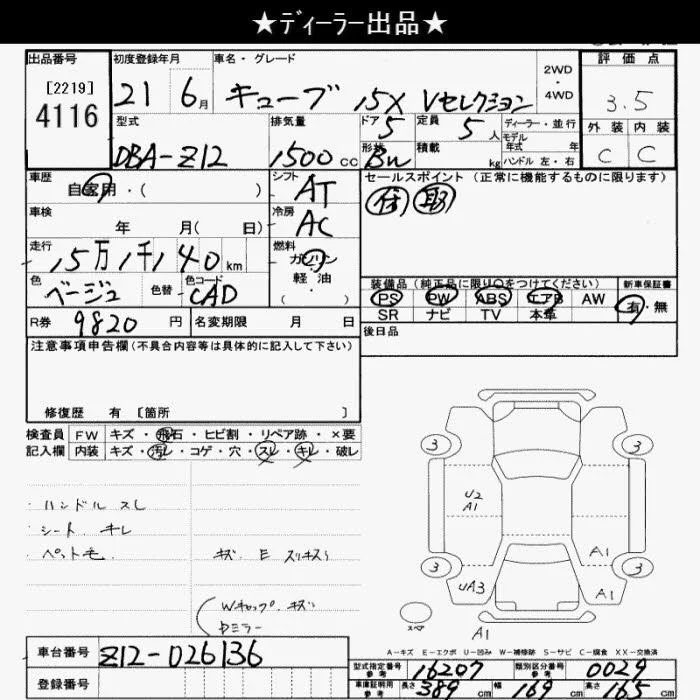 ★ディーラー出品★
出品番号 初度登録年月 車名・グレード 評価点
[2219] 21 6月 キューブ 15X Vセレクション 2WD・4WD 3.5
4116
型式 排気量 ドア 定員 ディーラー・並行 外装 内装
DBA-Z12 1500cc 5 5人 モデル年式 年 C C
形状 積載 kg ハンドル 左・右
Bn
車歴 シフト セールスポイント(正常に機能するものに限ります)
自家用・( ) AT 保 取
車検 冷房
年 月( 日) AC
走行 燃料
15万1千140km ガソリン・軽油・( )
色 色替 色コード 装備品(純正品に限り○をつけてください) 新車保証書
ベージュ CAD PS PW ABS エアB AW 有・無
R券 9820円 名変期限 月 日 SR ナビ TV 本革
注意事項申告欄(不具合内容等は具体的に記入して下さい) 後日品
修復歴 有 [箇所 ]
検査員 FW キズ・飛石・ヒビ割・リペア跡・×要
記入欄 内装 キズ・汚レ・コゲ・穴・スレ・キレ・破レ
・ハンドル スレ
・シート キレ
・ペット毛 キズ E スリキズ
Wキャップ キズ
Dミラー
3 3
U2
A1
A1
3 3
UA3 A1
スペア
A1
A-キズ E-エクボ U-凹み W-補修跡 S-サビ C-腐食 XX-交換済
車台番号 Z12-026136 型式指定番号 参考 16207 類別区分番号 参考 0029
登録番号 車庫証明用 参考 長さ 389cm 幅 169cm 高さ 165cm